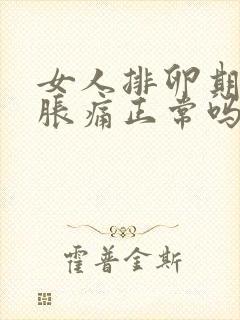 女人排卵期
胀痛正常吗
霍普金斯